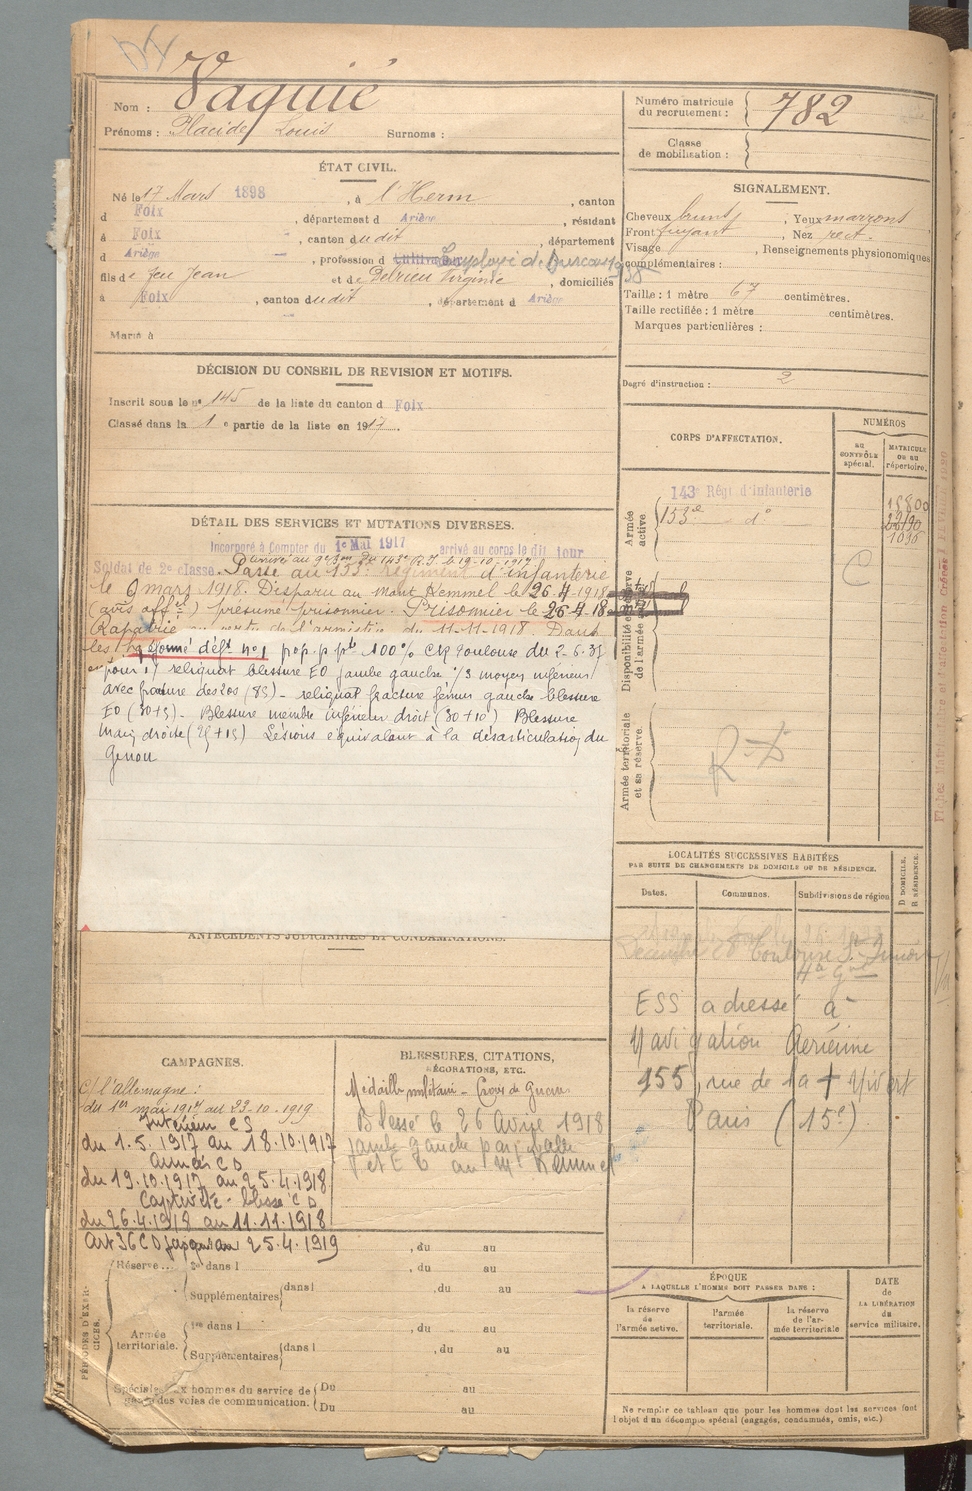 Vaquié
Nom :
Prénoms : Placide Louis Surnoms :
Numéro matricule du recrutement : 782
Classe de mobilisation :
ÉTAT CIVIL.
Né le 17 Mars 1898, à l'Herm, canton
d Foix, département d Ariège, résident
à Foix, canton dudit, département
d Ariège, profession d Cultivateur Employé de bureau 1935
fils de feu Jean et de Delrieu Virginie, domiciliés
à Foix, canton dudit, département d Ariège
Marié à
SIGNALEMENT.
Cheveux bruns, Yeux marrons
Front fuyant, Nez rect.
Visage , Renseignements physionomiques
complémentaires :
Taille : 1 mètre 67 centimètres.
Taille rectifiée : 1 mètre centimètres.
Marques particulières :
Degré d'instruction : 2
DÉCISION DU CONSEIL DE REVISION ET MOTIFS.
Inscrit sous le n° 145 de la liste du canton d Foix
Classé dans la 1 e partie de la liste en 1917.
CORPS D'AFFECTATION.
NUMÉROS
au CONTRÔLE spécial.
MATRICULE ou au répertoire.
Armée active
143e Régt d'infanterie
153e d°
Disponibilité et réserve de l'armée active
C
Armée territoriale et sa réserve.
R.D
DÉTAIL DES SERVICES ET MUTATIONS DIVERSES.
Incorporé à Compter du 1e Mai 1917 arrivé au corps le dit jour
Soldat de 2e classe. Passé au 153e Régiment d'infanterie
le 6 mars 1918. Disparu au Mont Kemmel le 26-4-1918
(avis offel) présumé prisonnier. Prisonnier le 26-4-18
Rapatrié
les foyers
réformé déft n°1 prop. p pte 100% CR Toulouse du 2-6-37
pour 1) reliquat blessure EO jambe gauche 1/3 moyen inférieur
avec fracture des 2 os (85) - reliquat fracture fémur gauche blessure
EO (30+5) - Blessure membre inférieur droit (30+10) Blessure
main droite (25+15) Lésions équivalant à la désarticulation du
Genou
ANTÉCÉDENTS JUDICIAIRES ET CONDAMNATIONS.
LOCALITÉS SUCCESSIVES HABITÉES
PAR SUITE DE CHANGEMENTS DE DOMICILE OU DE RÉSIDENCE.
Dates. Communes. Subdivisions de région
D DOMICILE. R RÉSIDENCE.
Toulouse
ESS adresse à
Navigation Aérienne
155, rue de la + Nivert
Paris (15e)
CAMPAGNES.
C/ l'Allemagne :
du 1er mai 1917 au 23-10-1919
Intérieur CS
du 1.5.1917 au 18.10.1917
armées CD
du 19.10.1917 au 25.4.1918
Captivité - blessé CD
du 26.4.1918 au 11.11.1918
Art 36 CD jusqu'au 25.4.1919
BLESSURES, CITATIONS,
DÉCORATIONS, ETC.
Médaille militaire - Croix de Guerre
Blessé le 26 Avril 1918
jambe gauche par balle
au Mt Kemmel
PÉRIODES D'EXERCICES.
, du au
Réserve... dans l , du au
Supplémentaires dans l , du au
Armée territoriale. 1re dans l , du au
Supplémentaires dans l , du au
Spéciales aux hommes du service de garde des voies de communication. Du au
Du au
ÉPOQUE
A LAQUELLE L'HOMME DOIT PASSER DANS :
la réserve de l'armée active.
l'armée territoriale.
la réserve de l'armée territoriale
DATE de LA LIBÉRATION du service militaire.
Ne remplir ce tableau que pour les hommes dont les services font
l'objet d'un décompte spécial (engagés, condamnés, omis, etc.)